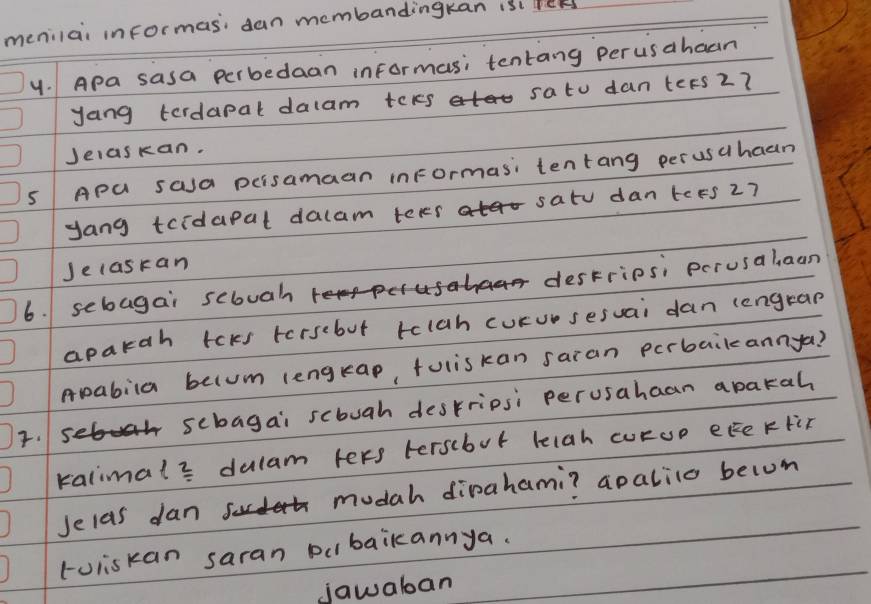 menilai informasi dan membandingkan isi teks
4. Apa saja perbedaan informasi tentang perusahaan
yang terdapat dalam teks atau satu dan teks 2?
Jelaskan.
5 Apa saja persamaan informasi tentang perusahaan
yang terdapat dalam teks atau satu dan teks 2?
Jelaskan
6. sebagai sebuah teks perusahaan deskripsi perusahaan
apakah teks tersebut telah cukup sesuai dan lengkap
Apabila belum lengkap, tuliskan saran perbaikannya?
7. sebuah sebagai sebuah deskripsi perusahaan apakah
kalimat2 dalam teks tersebut telah cukup efektif
Jelas dan sudah mudah dipahami? apabila belum
tuliskan saran perbaikannya.
jawaban